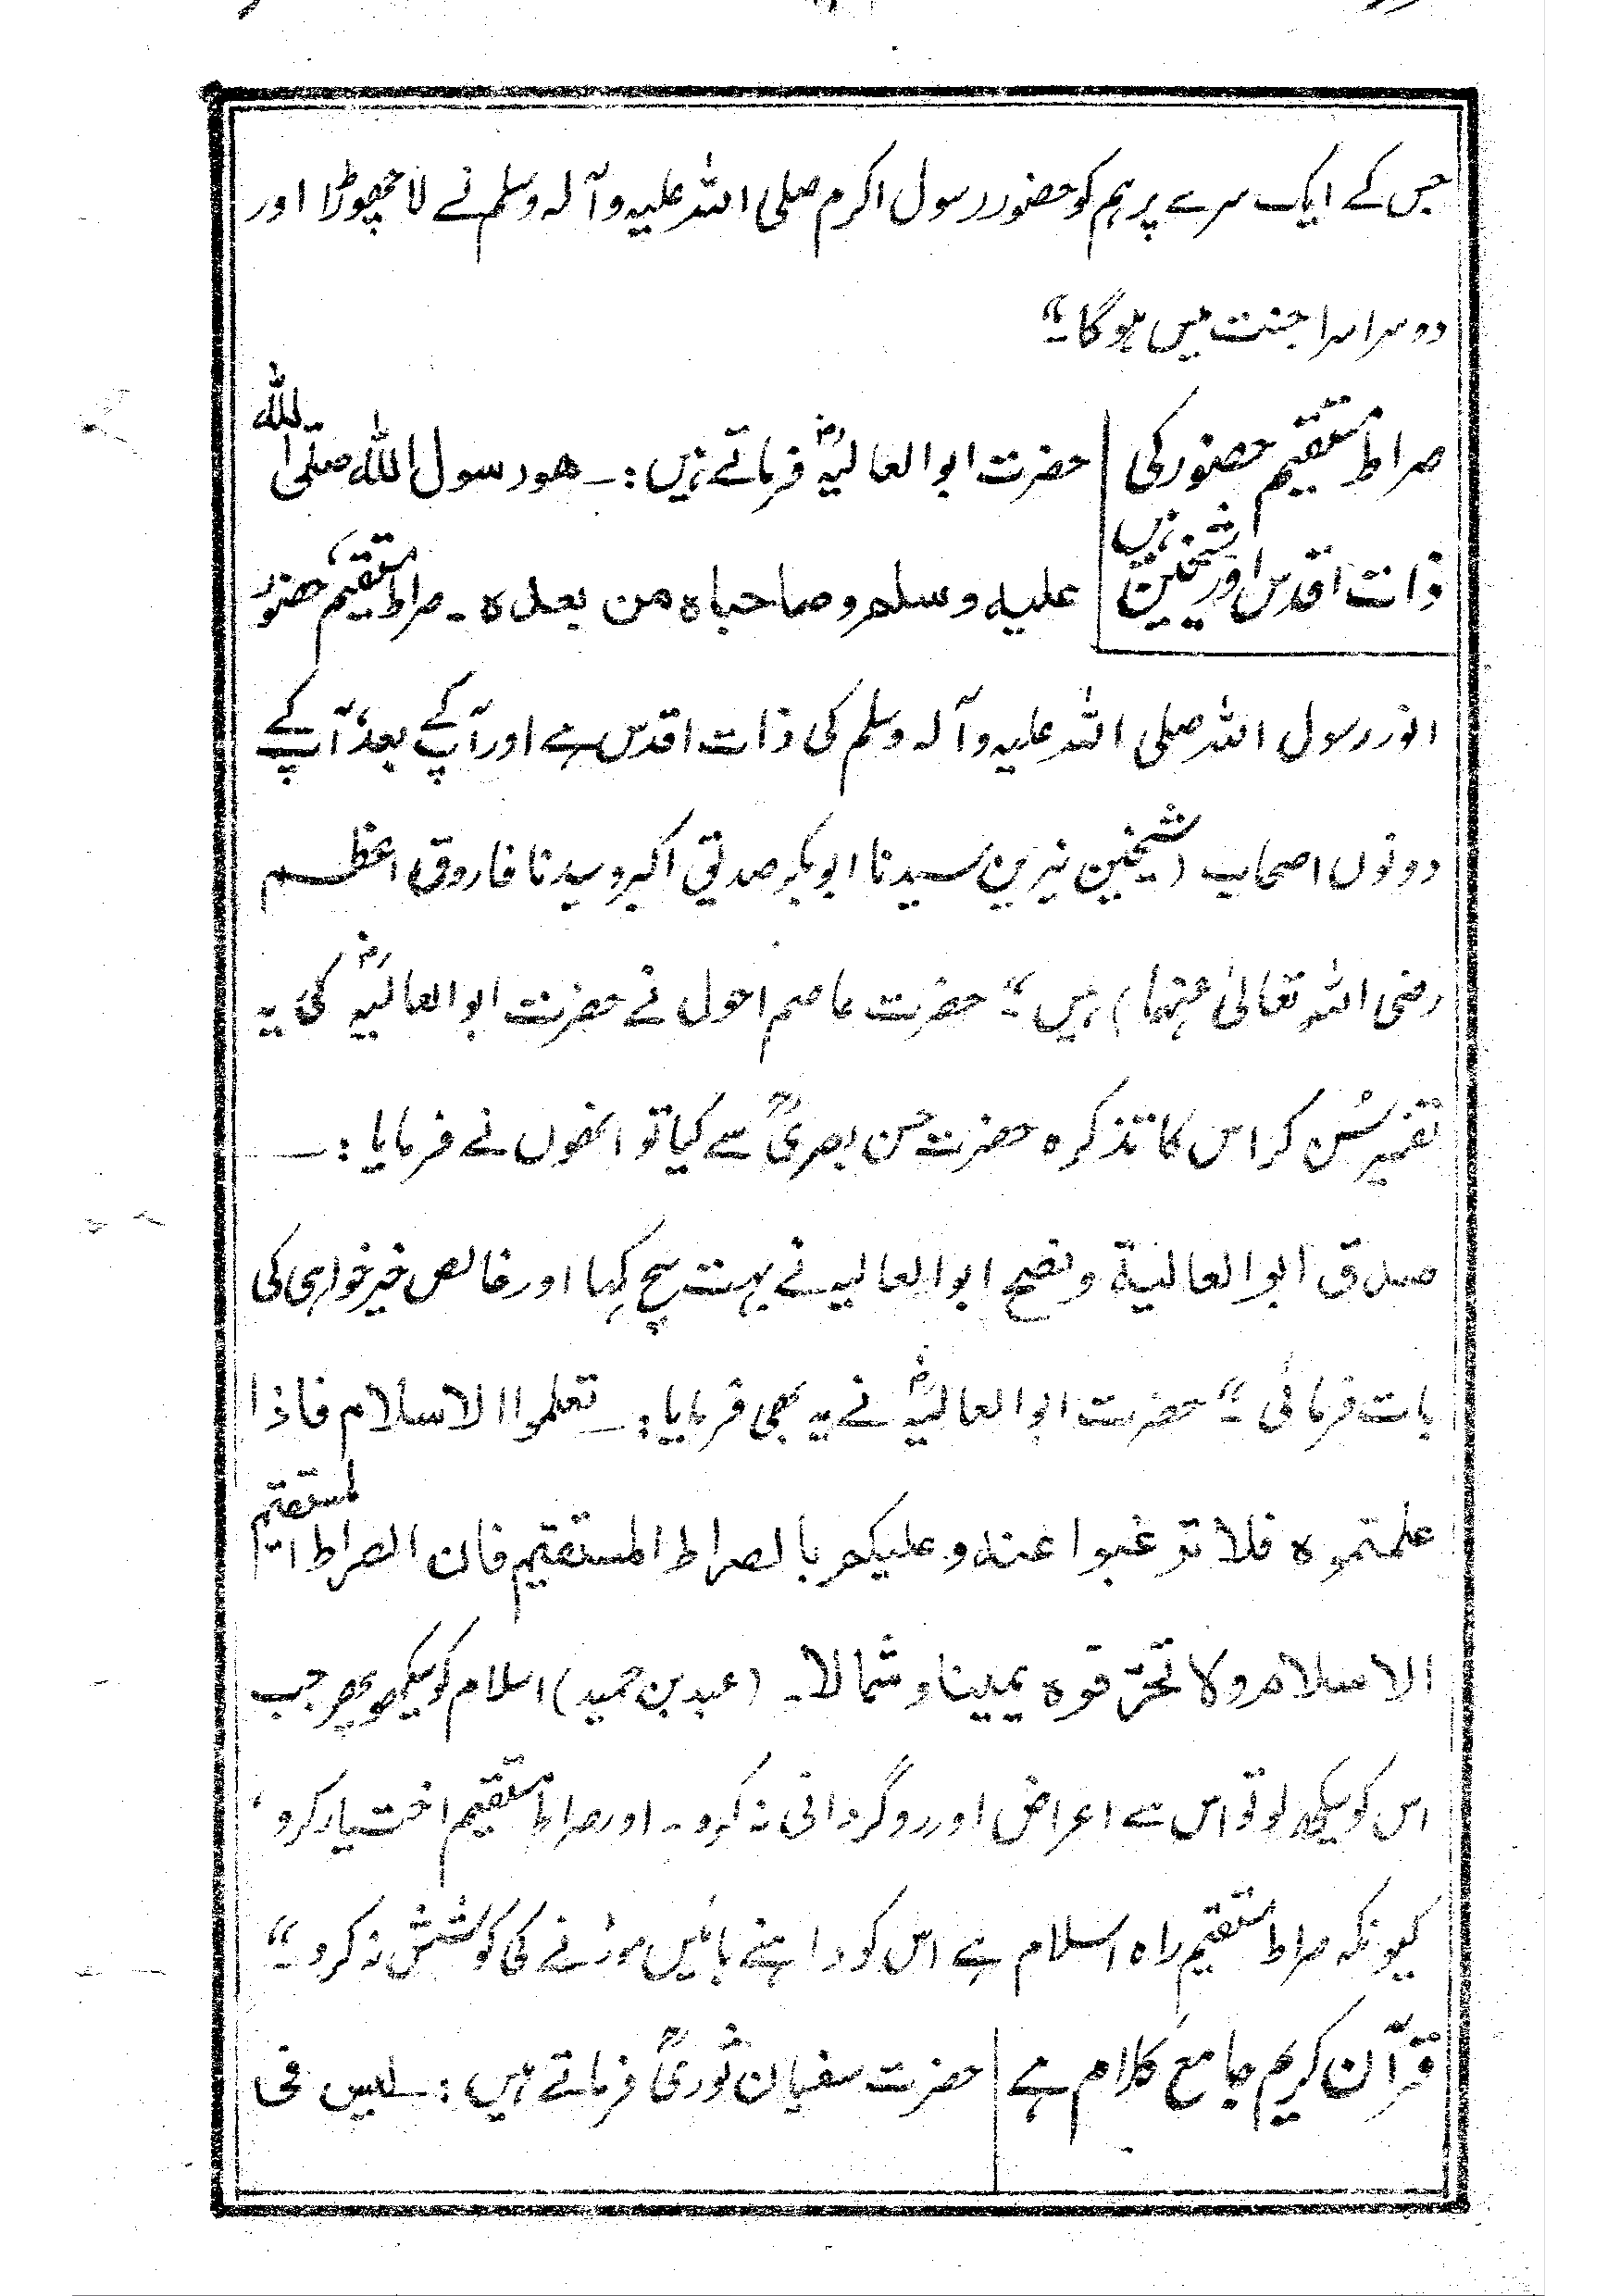 جس کے ایک سرے پر ہم کو حضور رسول اکرم صلی اللہ علیہ وآلہ وسلم نے لا چھوڑا اور
دوسرا سرا جنت میں ہوگا۔“
صراط مستقیم حضور کی
ذات اقدس اور شیخین ہیں
حضرت ابوالعالیہؒ فرماتے ہیں :۔ ھو رسول اللہ صلی اللہ
علیہ وسلم وصاحباہ من بعدہ ۔ صراط مستقیم، حضور
انور رسول اللہ صلی اللہ علیہ وآلہ وسلم کی ذات اقدس ہے اور آپ کے بعد، آپ کے
دونوں اصحاب (شیخین نیرین سیدنا ابوبکر صدیق اکبر و سیدنا فاروق اعظم
رضی اللہ تعالیٰ عنہما) ہیں۔“ حضرت عاصم احول نے حضرت ابوالعالیہؒ کی یہ
تفسیر سُن کر اس کا تذکرہ حضرت حسن بصریؒ سے کیا تو انھوں نے فرمایا :۔
صدق ابوالعالیة ونصح ابوالعالیہ نے بہت سچ کہا اور خالص خیر خواہی کی
بات فرمائی۔“ حضرت ابوالعالیہؒ نے یہ بھی فرمایا :۔ تعلموا الاسلام فاذا
علمتموہ فلا ترغبوا عنہ وعلیکم بالصراط المستقیم فان الصراط المستقیم
الاسلام ولا تحرّفوہ یمینا وشمالا۔ (عبد بن حمید) اسلام کو سیکھو پھر جب
اس کو سیکھ لو تو اس سے اعراض اور روگردانی نہ کرو۔ اور صراط مستقیم اختیار کرو،
کیونکہ صراط مستقیم راہ اسلام ہے اس کو داہنے بائیں موڑنے کی کوشش نہ کرو۔“
قرآن کریم جامع کلام ہے
حضرت سفیان ثوریؒ فرماتے ہیں :۔ لیس فی